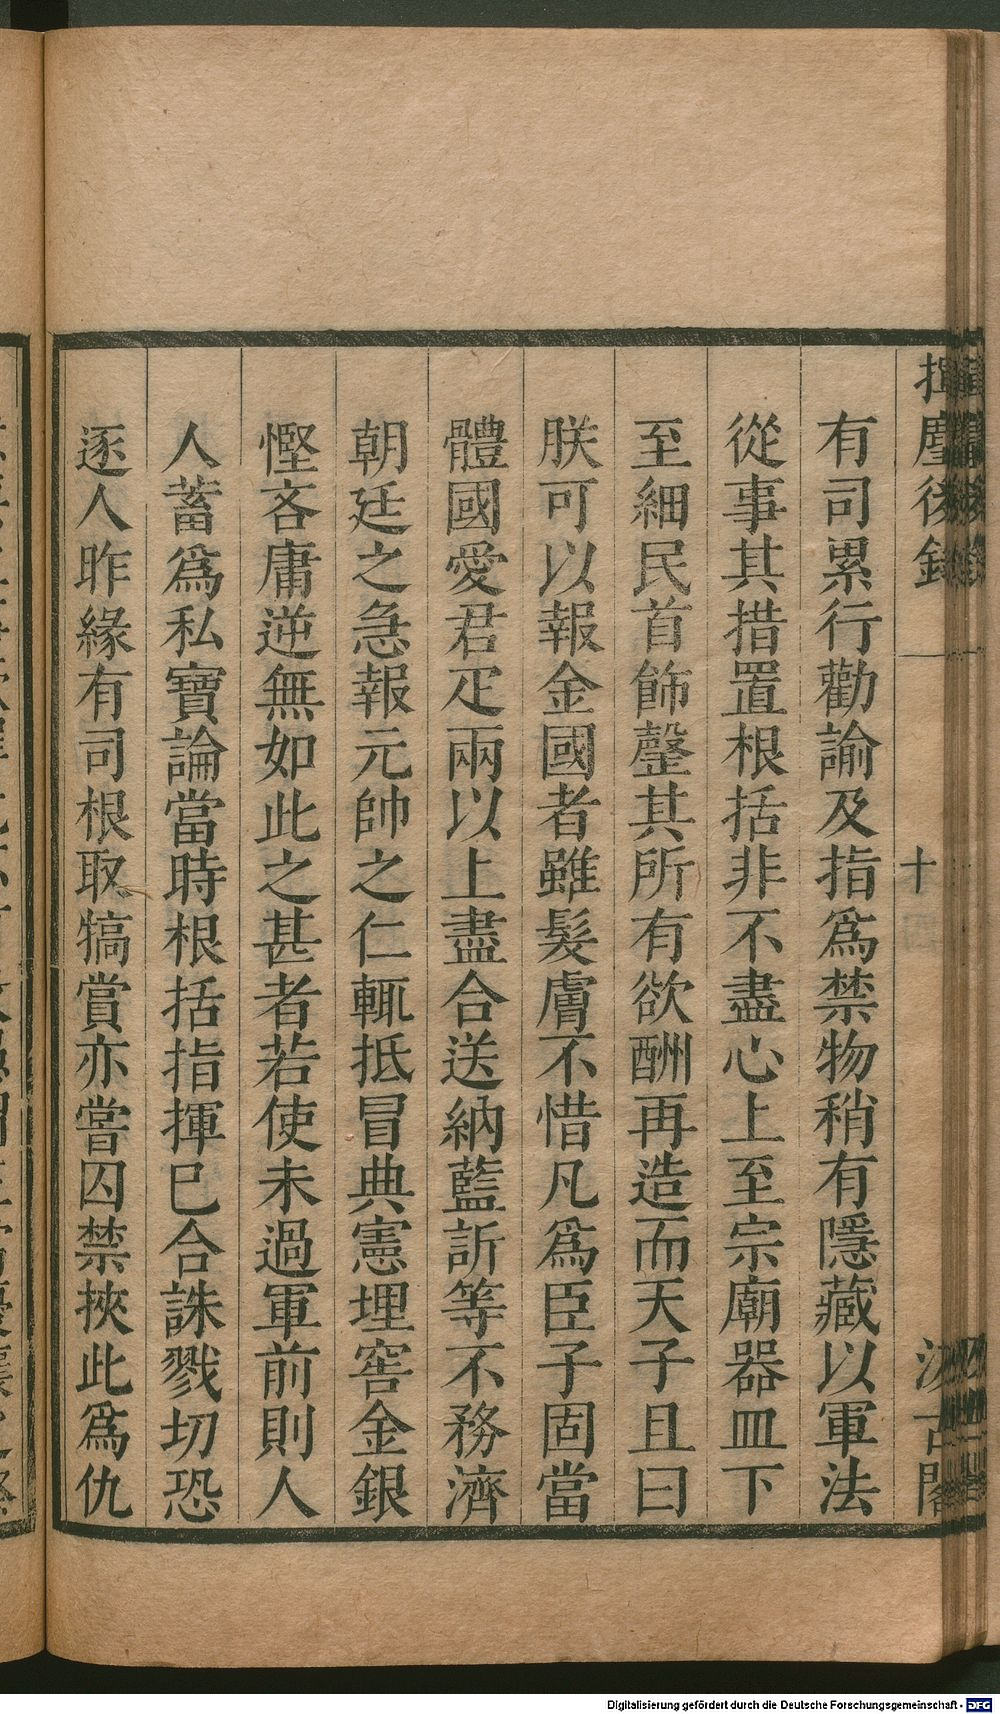 揮麈後錄
十
汲古閣
有司累行勸諭及指爲禁物稍有隱藏以軍法
從事其措置根括非不盡心上至宗廟器皿下
至細民首飾罄其所有欲酬再造而天子且曰
朕可以報金國者雖髮膚不惜凡爲臣子固當
體國愛君疋兩以上盡合送納藍訢等不務濟
朝廷之急報元帥之仁輒抵冒典憲埋窖金銀
慳吝庸逆無如此之甚者若使未過軍前則人
人蓄爲私寶論當時根括指揮巳合誅戮切恐
逐人昨緣有司根取犒賞亦嘗囚禁挾此爲仇
Digitalisierung gefördert durch die Deutsche Forschungsgemeinschaft - DFG